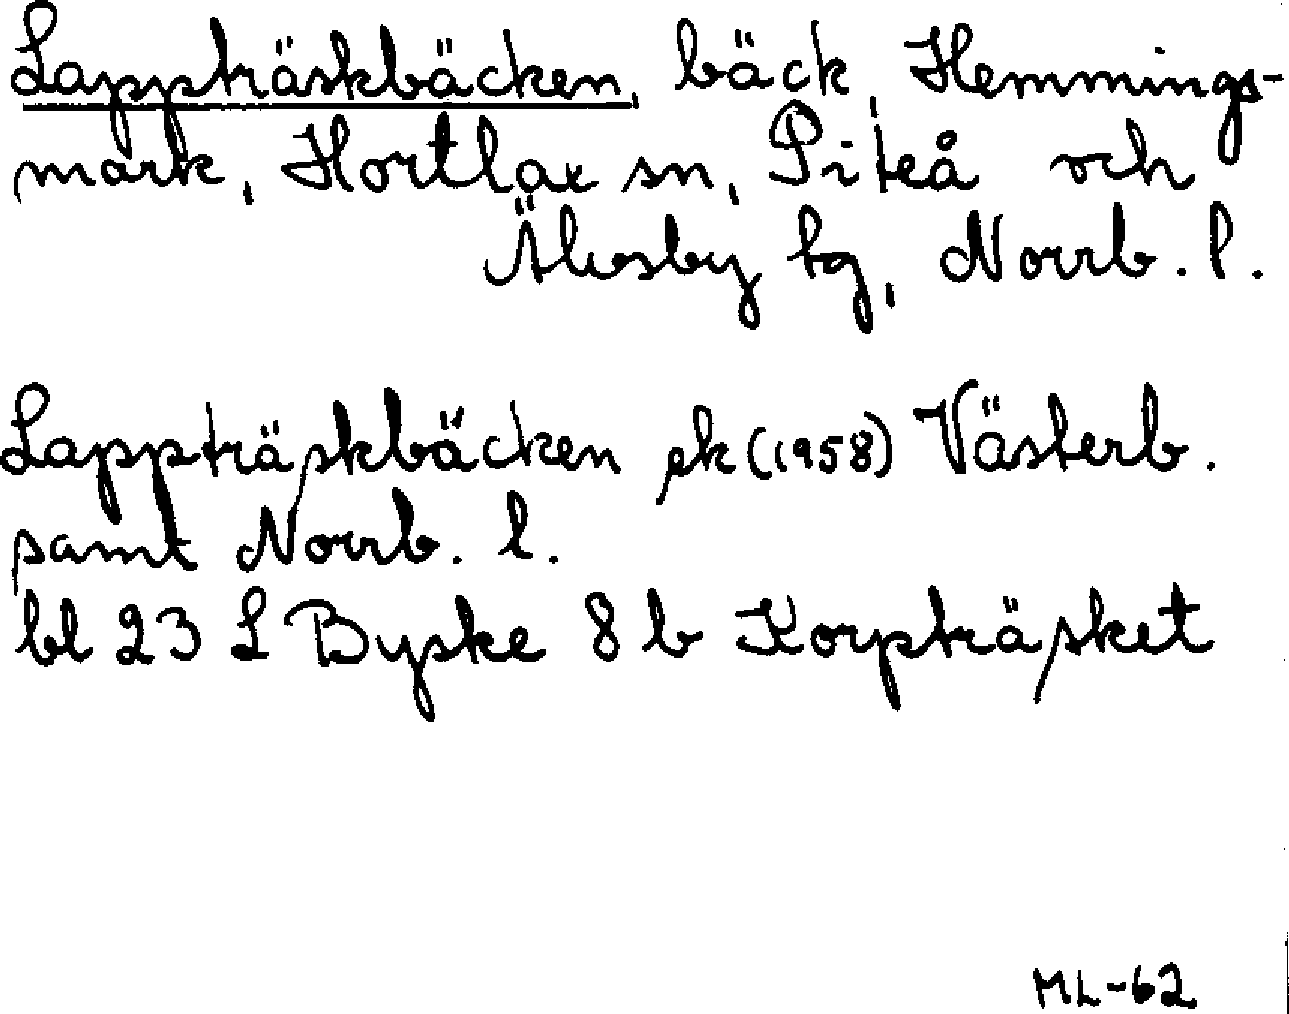 Lappträskbäcken, bäck, Hemmings-
mark, Hortlax sn, Piteå och
Älvsby tg, Norrb. l.
Lappträskbäcken ek (1958) Västerb.
samt Norrb. l.
bl 23 L Byske 8 b Korpträsket
ML-62